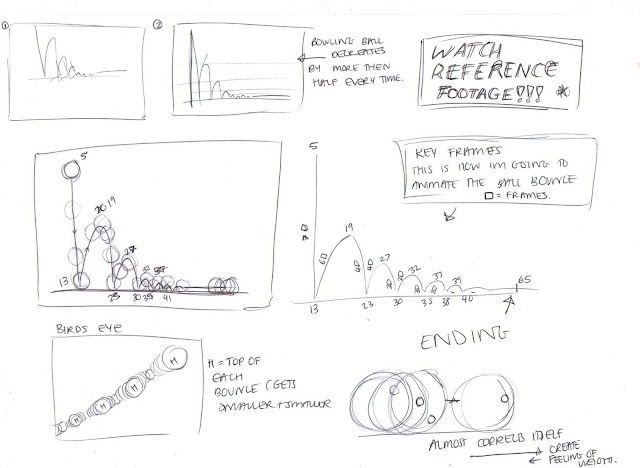 ①
②
BOWLING BALL
DECREASES
BY MORE THEN
HALF EVERY TIME.
WATCH
REFERENCE
FOOTAGE!!! *
5
20 19
27
13
25
30
41
KEY FRAMES
THIS IS HOW IM GOING TO
ANIMATE THE BALL BOUNCE
□ = FRAMES.
5
19
27
32
39
65
13
23
30
35
38
40
BIRDS EYE
H H H H
H = TOP OF
EACH
BOUNCE (GETS
SMALLER + SMALLER
ENDING
ALMOST CORRECTS ITSELF
CREATE
FEELING OF
WEIGHT.